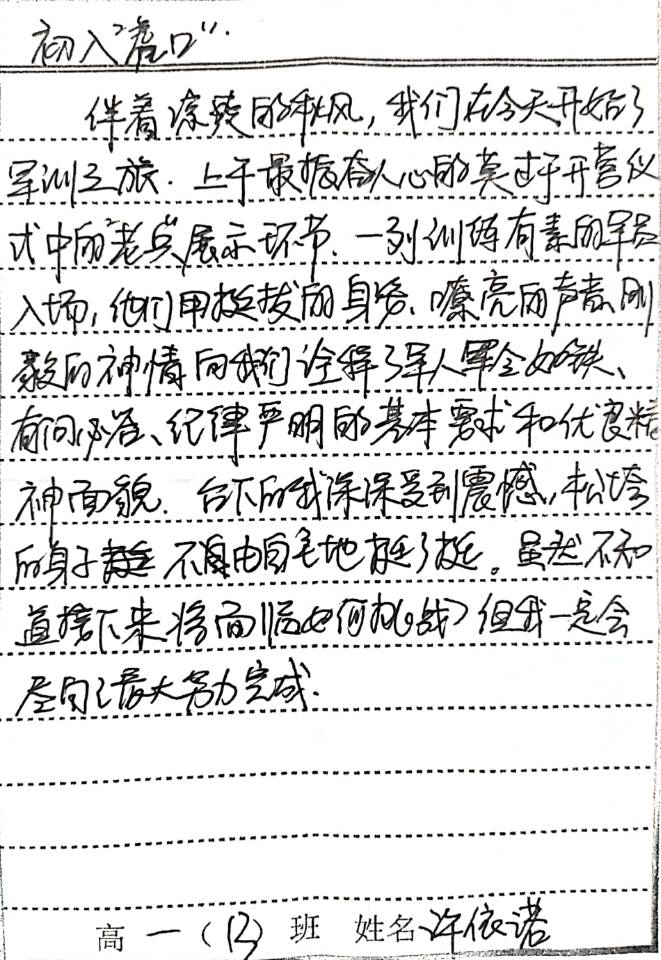 初入“虎口”.
伴着凉爽的秋风，我们在今天开始了
军训之旅．上午最振奋人心的莫过于开营仪
式中的“老兵”展示环节．一列训练有素的军官
入场，他们用挺拔的身姿、嘹亮的声音、刚
毅的神情向我们诠释了军人军令如铁、
有问必答、纪律严明的基本要求和优良精
神面貌．台下的我深深受到震撼，松垮
的身子 不自由自主地挺了挺。虽然不知
道接下来将面临如何挑战，但我一定会
尽自己最大努力完成．
高一（12）班 姓名 许依诺